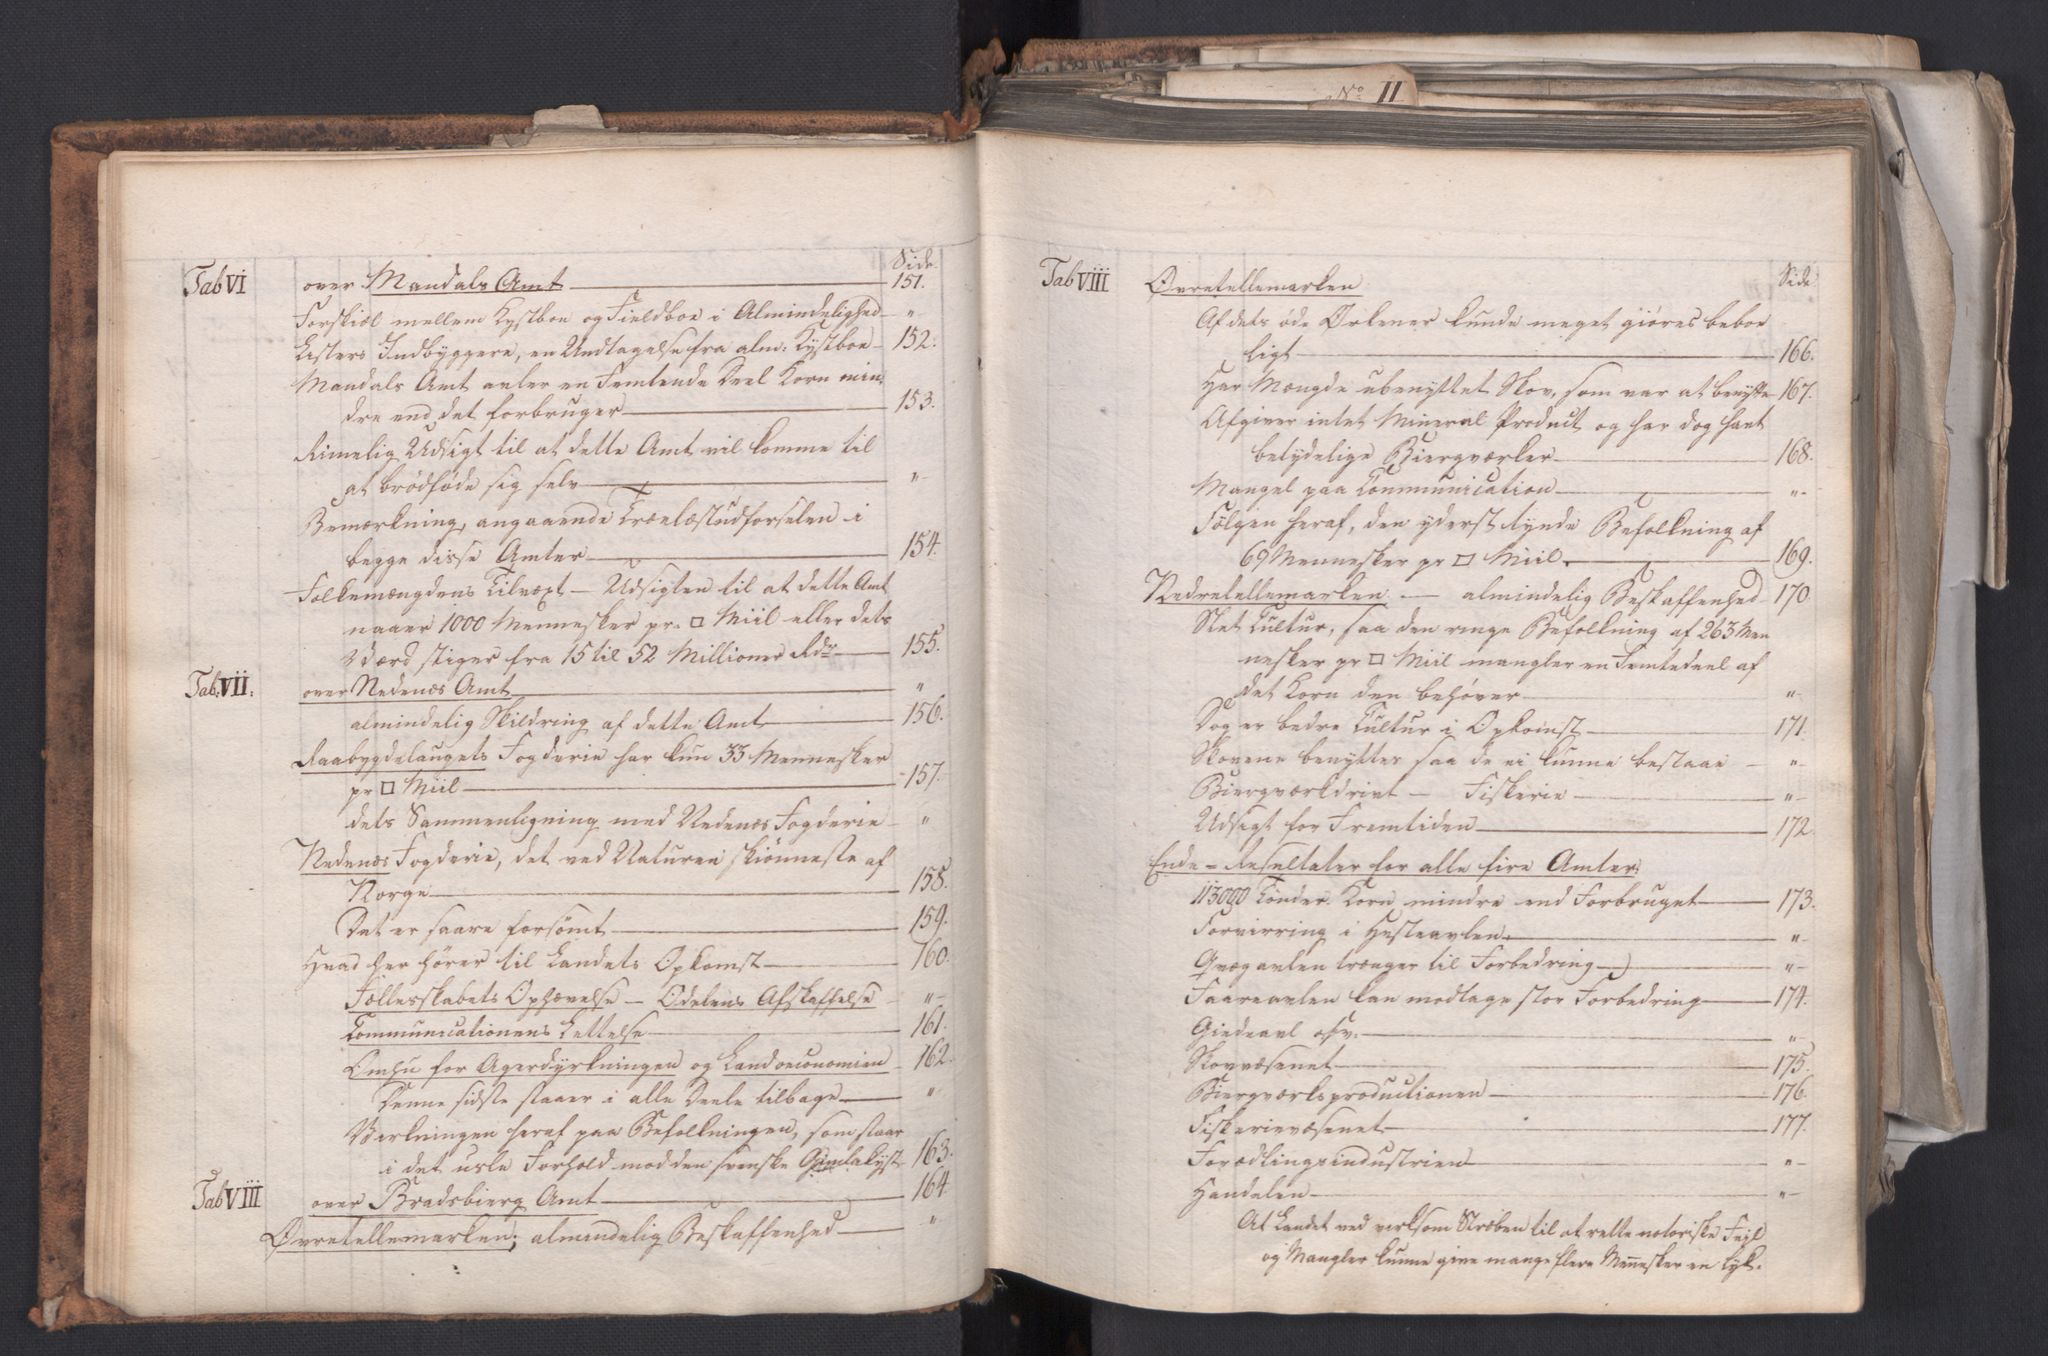 Side.
Tab VI over Mandals Amt 151.
Forskiæl mellem Kystboe og Fieldboe i Almindelighed "
Listers Indbyggere, en Undtagelse fra alm: Kystboe 152.
Mandals Amt avler en Femtende Deel Korn min
dre end det forbruger 153.
Rimelig Udsigt til at dette Amt vil komme til
at brødføde sig selv "
Bemærkning, angaaende Trælastudførselen i
begge disse Amter 154.
Folkemængdens Tilvæxt — Udsigten til at dette Amt
naaer 1000 Mennesker pr. □ Miil eller dets
Værd stiger fra 15 til 52 Millioner Rdr 155.
Tab. VII. over Nedenæs Amt "
almindelig Skildring af dette Amt 156.
Raabygdelaugets Fogderie har kun 33 Mennesker
pr □ Miil 157.
dets Sammenligning med Nedenæs Fogderie "
Nedenæs Fogderie, det ved Naturen skiønneste af
Norge 158.
Det er saare forsømt 159.
Hvad her hører til Landets Opkomst 160.
Fællesskabets Ophævelse — Odelens Afskaffelse "
Communicationens Lettelse 161.
Omhu for Agerdyrkningen og Landoeconomien 162.
Denne sidste staaer i alle Deele tilbage "
Virkningen heraf paa Befolkningen, som staar
i det usle Forhold mod den svenske Gimlakyst 163.
Tab VIII over Bradsbierg Amt 164
Øvretellemarken; almindelig Beskaffenhed "
No II
Tab VIII Øvretellemarken Side
Af dets øde Ørkener kunde meget giøres beboe
ligt 166.
Har Mængde ubenyttet Skov, som var at benytte 167.
Afgiver intet Mineral Product og har dog havt
betydelige Biergværker 168.
Mangel paa Communication "
Følgen heraf, den yderst tynde Befolkning af
69 Mennesker pr □ Miil. 169.
Nedretellemarken — almindelig Beskaffenhed 170.
Slet Cultur, saa den ringe Befolkning af 263 Men
nesker pr □ Miil mangler en Femtedeel af
det Korn den behøver "
Dog er bedre Cultur i Opkomst 171.
Skovene benyttes saa de ei kunne bestaae "
Biergværkdrivt — Fiskerie "
Udsigt for Fremtiden 172.
Ende-Resultater for alle fire Amter:
113090 Tønder Korn mindre end Forbruget 173.
Forvirring i Hesteavlen "
Qvægavlen trænger til Forbedring "
Faareavlen kan modtage stor Forbedring 174.
Giedeavl osv. "
Skovvæsenet 175.
Biergværksproductionen 176.
Fiskerievæsenet 177.
Forædlingsindustrien "
Handelen "
At Landet ved virksom Stræben til at rette notoriske Feil
og Mangler kunne give mange flere Mennesker en lyk-